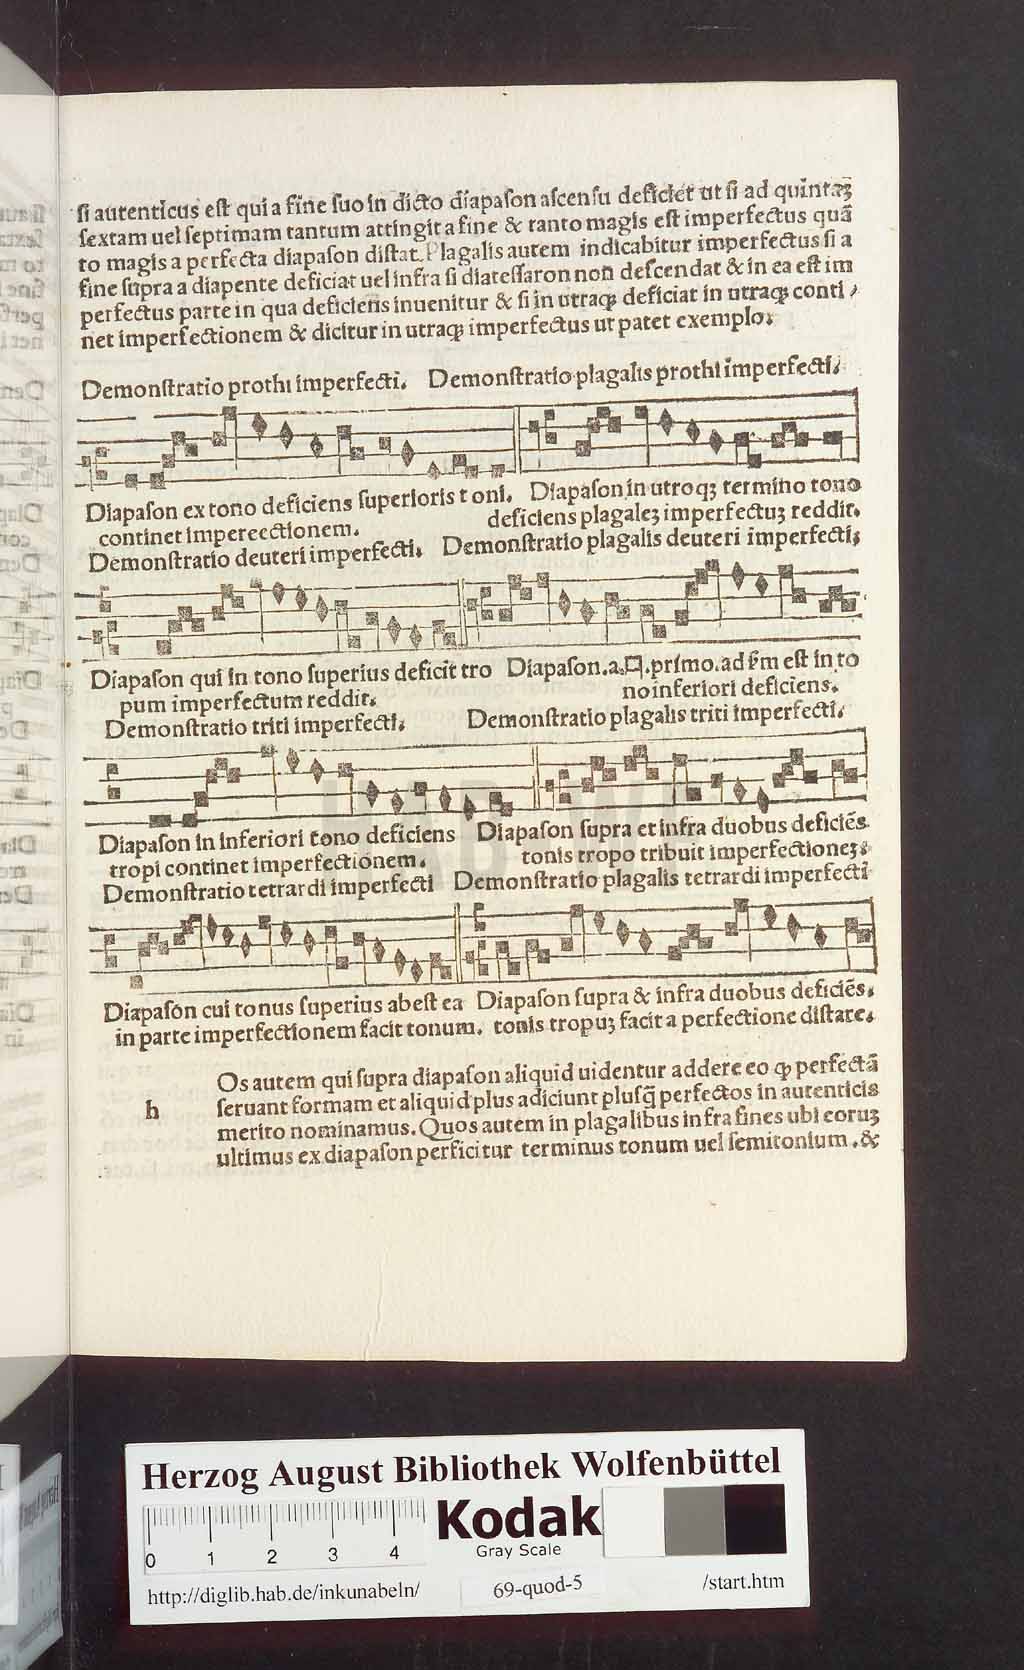 ſi autenticus eſt qui a fine ſuo in dicto diapaſon aſcenſu deficiet ut ſi ad quintaꝫ
ſextam uel ſeptimam tantum attingit a fine & tanto magis eſt imperfectus quā
to magis a perfecta diapaſon diſtat. Plagalis autem indicabitur imperfectus ſi a
fine ſupra a diapente deficiat uel infra ſi diateſſaron non deſcendat & in ea eſt im
perfectus parte in qua deficiens inuenitur & ſi in utraqꝫ deficiat in utraqꝫ conti ,
net imperfectionem & dicitur in utraqꝫ imperfectus ut patet exemplo.
Demonſtratio prothi imperfecti. Demonſtratio plagalis prothi imperfecti.
Diapaſon ex tono deficiens ſuperioris t oni. Diapaſon in utroqꝫ termino tono
continet impereectionem. deficiens plagaleꝫ imperfectuꝫ reddit.
Demonſtratio deuteri imperfecti. Demonſtratio plagalis deuteri imperfecti.
Diapaſon qui in tono ſuperius deficit tro Diapaſon .a.♮.primo. ad f̄m eſt in to
pum imperfectum reddit. no inferiori deficiens.
Demonſtratio triti imperfecti. Demonſtratio plagalis triti imperfecti.
Diapaſon in inferiori tono deficiens Diapaſon ſupra et infra duobus deficiēs
tropi continet imperfectionem. tonis tropo tribuit imperfectioneꝫ.
Demonſtratio tetrardi imperfecti Demonſtratio plagalis tetrardi imperfecti
Diapaſon cui tonus ſuperius abeſt ea Diapaſon ſupra & infra duobus deficiēs.
in parte imperfectionem facit tonum. tonis tropuꝫ facit a perfectione diſtare.
Os autem qui ſupra diapaſon aliquid uidentur addere eo ꝙ perfectā
h ſeruant formam et aliquid plus adiciunt pluſq̄ perfectos in autenticis
merito nominamus. Quos autem in plagalibus infra fines ubi eoruꝫ
ultimus ex diapaſon perficitur terminus tonum uel ſemitonium .&
HAB W
Herzog August Bibliothek Wolfenbüttel
0 1 2 3 4
Kodak
Gray Scale
http://diglib.hab.de/inkunabeln/ 69-quod-5 /start.htm